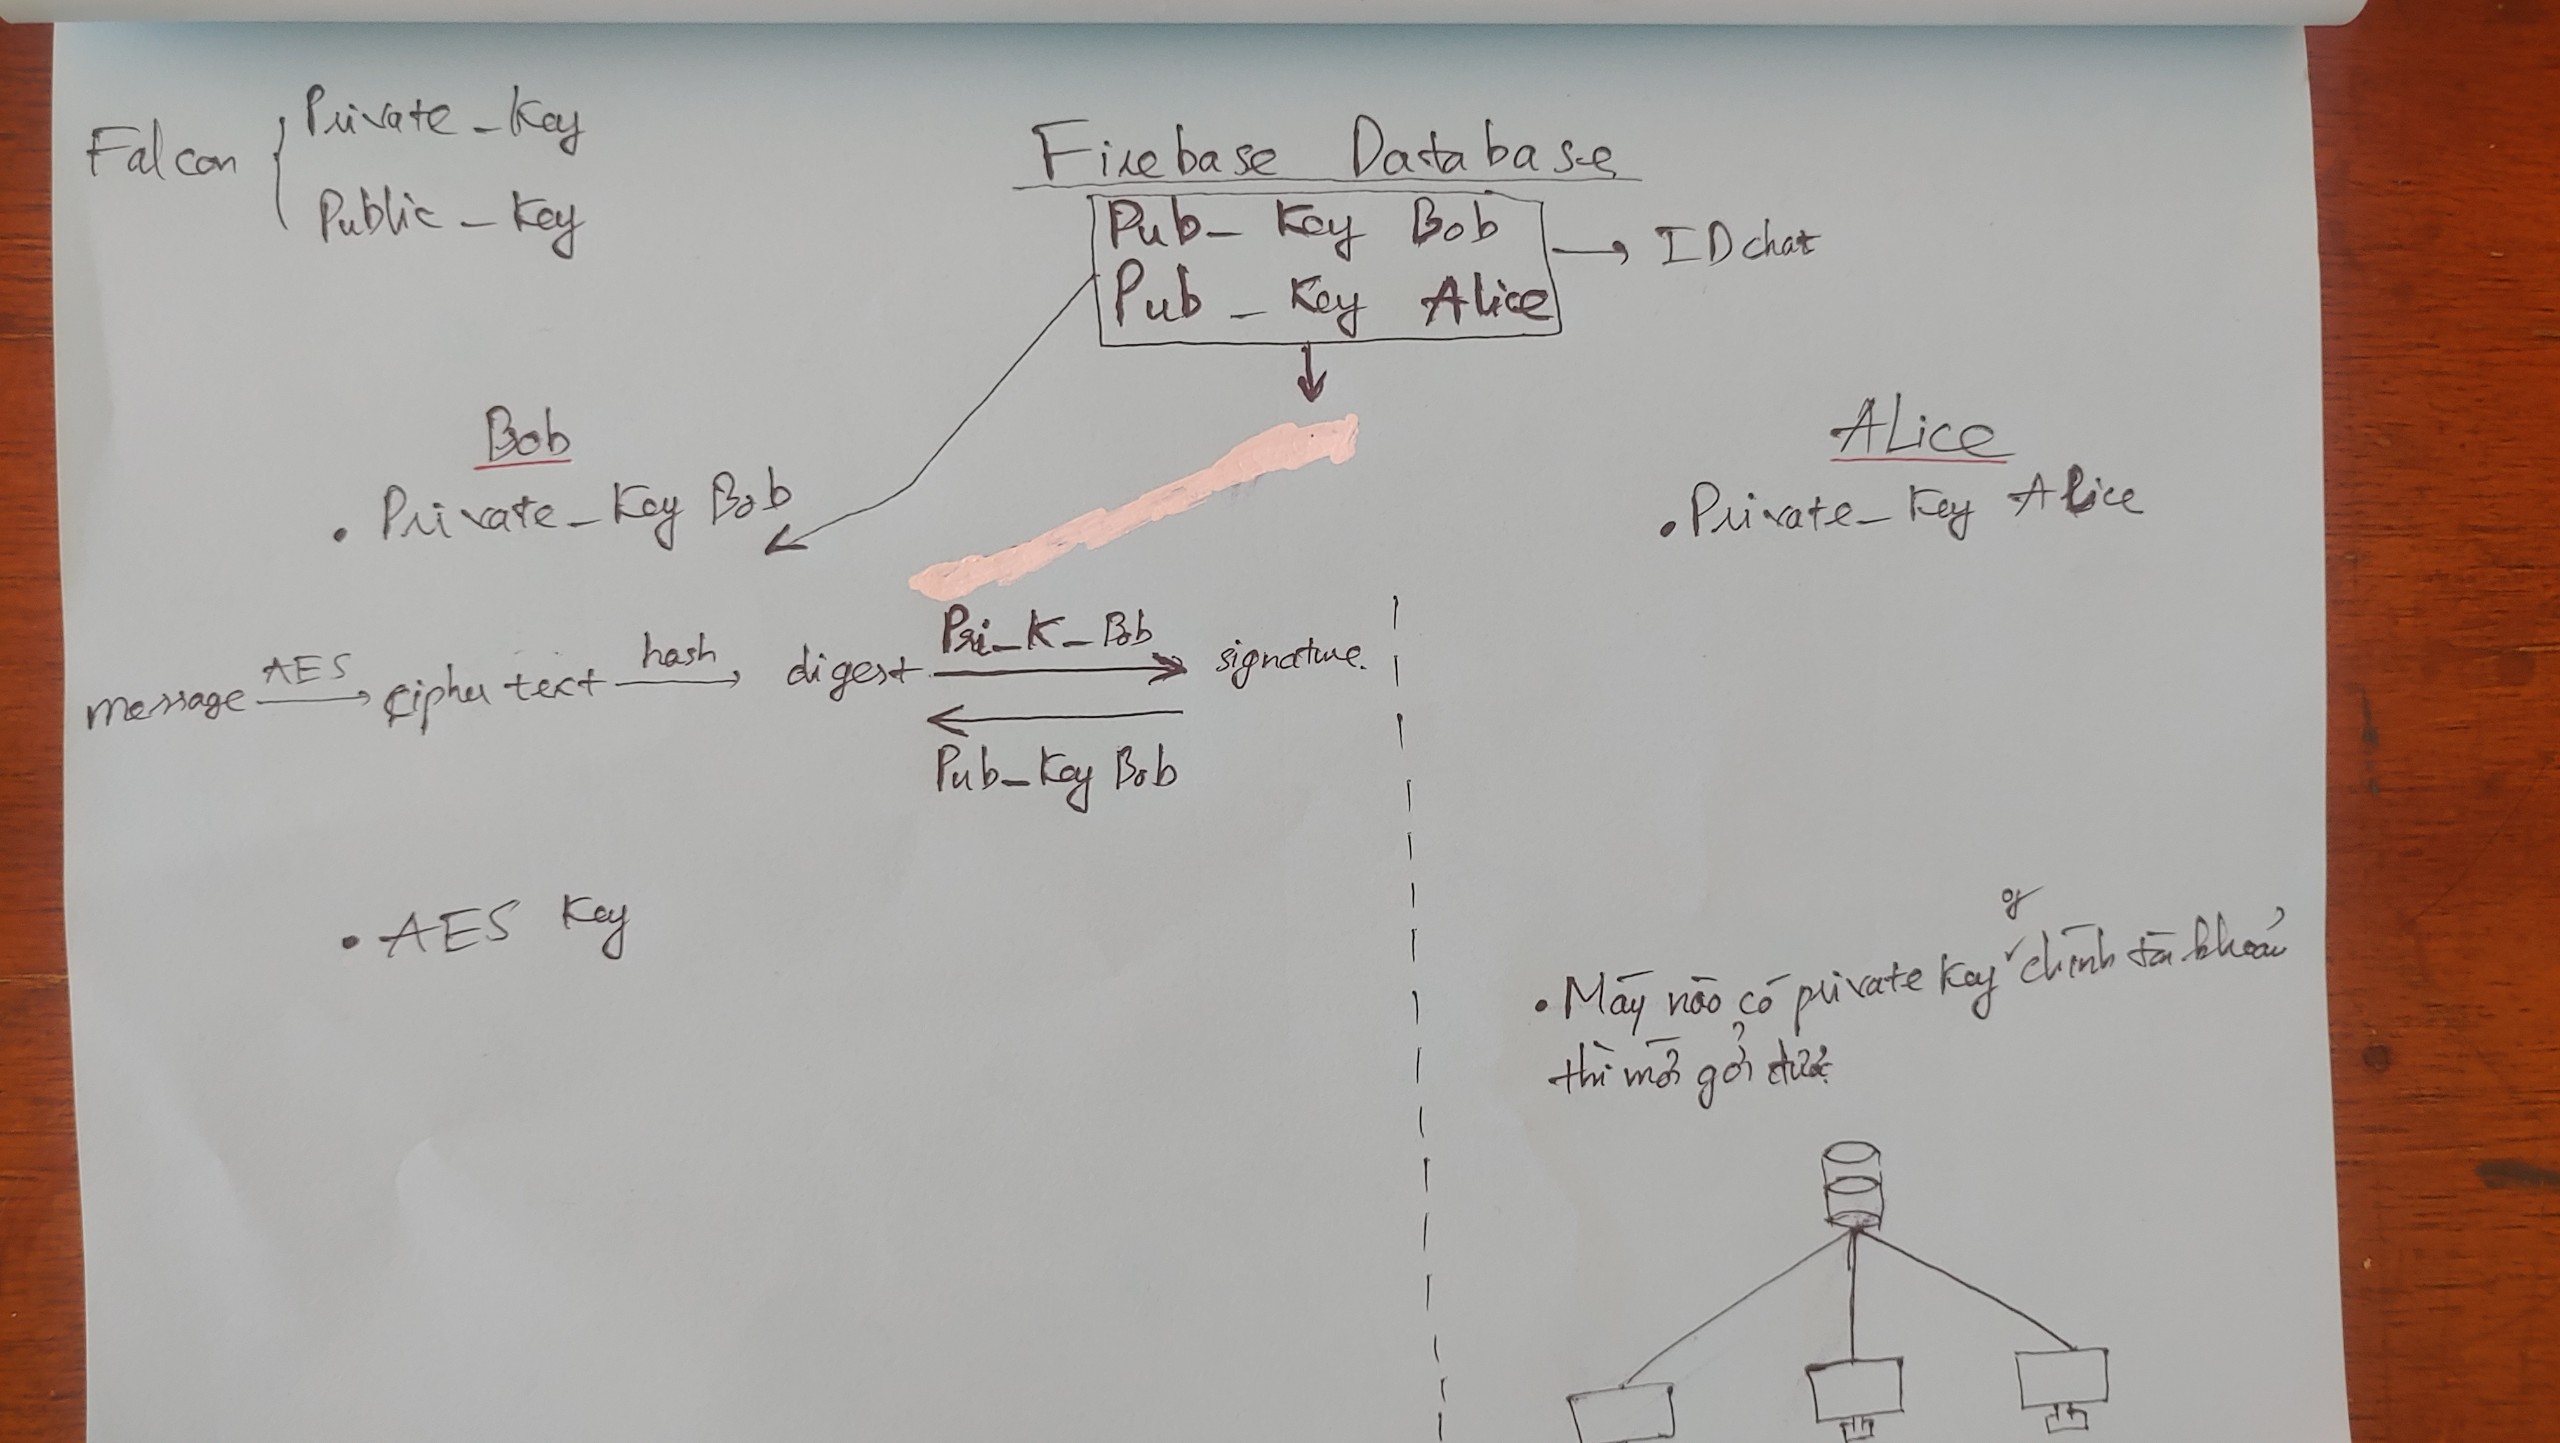 Falcon
Private_Key
Public_Key
Firebase Database
Pub_ Key Bob
Pub_Key Alice
IDchat
Bob
• Private_Key Bob
ALice
• Private_Key Alice
message
AES
cipher text
hash
digest
Pri_K_Bob
signature.
Pub_Key Bob
• AES Key
of
• Máy nào có private key chính tài khoản
thì mới gởi được